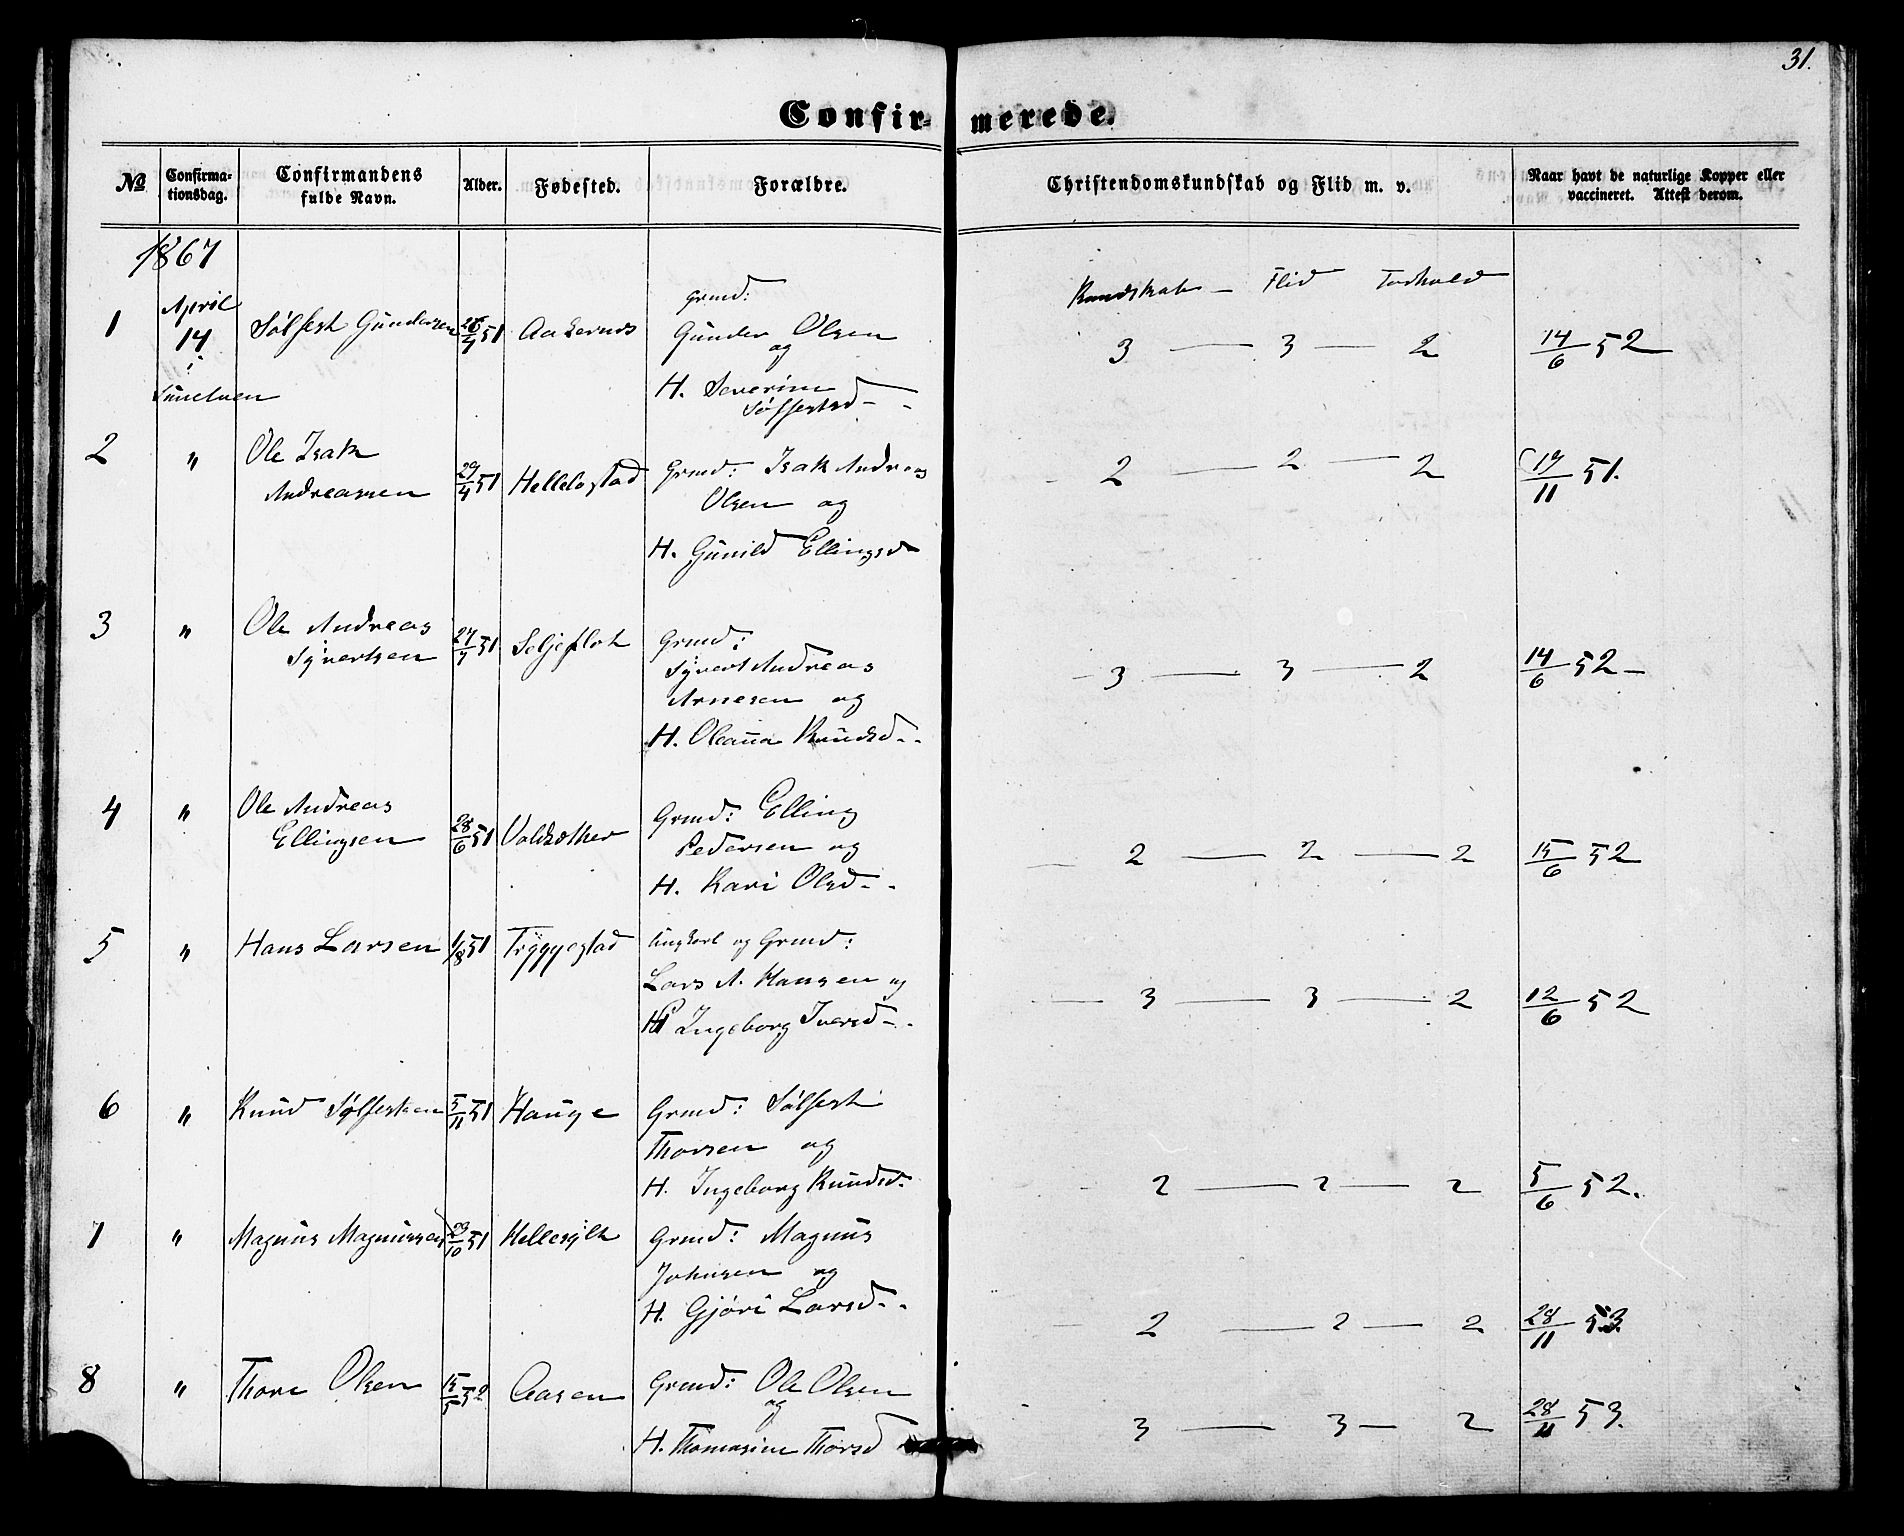 31.
Confir- merede.
No Confirma-tionsdag. Confirmandens fulde Navn. Alder. Fødested. Forældre. Christendomskundskab og Flid m. v. Naar havt de naturlige Kopper eller vaccineret. Attest derom.
1867
Kundskab – Flid Forhold
1 April 14 i Sunelven
Sølfest Gundersen 26/7 51 Aakernes
Grmd:
Gunder Olsen
og
H. Severine
Sølfestsd –
3 — 3 — 2 14/6 52
2 " Ole Isak
Andreassen 29/4 51 Hellebostad
Grmd: Isak Andreas
Olsen og
H. Gunild Ellingsd
2 — 2 — 2 19/11 51.
3 " Ole Andreas
Syvertsen 27/7 51 Seljeflot
Grmd:
Syvert Andreas
Arnesen og
H. Oleana Knudsd - -
3 — 3 — 2 14/6 52 –
4 " Ole Andreas
Ellingsen 28/6 51 Voldsæther
Grmd: Elling
Pedersen og
H. Kari Olsd - -
2 — 2 — 2 15/6 52
5 " Hans Larsen 1/8 51 Tryggestad
Ungkarl og Grmd:
Lars A. Hansen og
P Ingeborg Iversd - -
3 — 3 — 2 12/6 52
6 " Knud Sølfestsen 5/11 51 Hauge
Grmd: Sølfest
Thorsen og
H. Ingeborg Knudsd.
2 — 2 — 2 5/6 52.
7 " Magnus Magnussen 29/10 51 Hellesylt
Grmd: Magnus
Johnsen og
H. Gjøri Larsd - -
2 — 2 — 2 28/11 53
8 " Thore Olsen 15/5 52 Aasen
Grmd: Ole Olsen
og
H. Thomasine Thorsd
3 — 3 — 2 28/11 53.